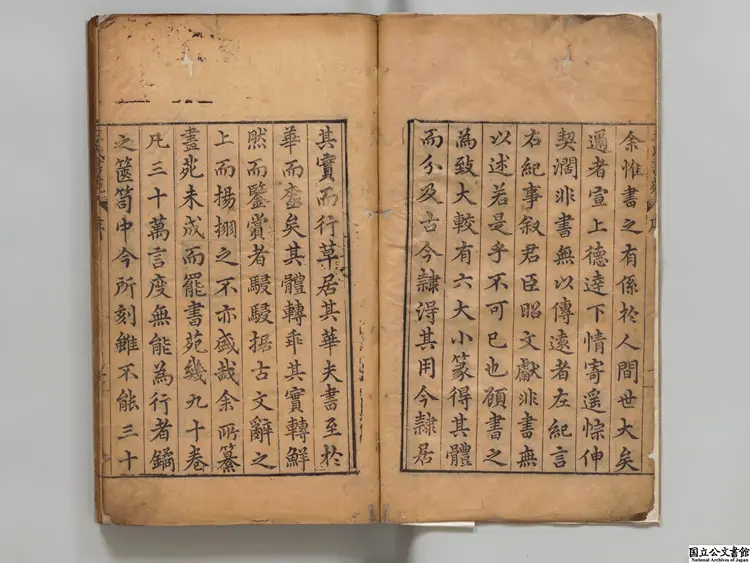 余惟書之有係於人間世大矣
邇者宣上德達下情寄遥悰伸
契濶非書無以傳遠者左紀言
右紀事叙君臣昭文獻非書無
以述若是乎不可已也顧書之
為致大較有六大小篆得其體
而分及古今隸得其用今隸居
其實而行草居其華夫書至於
華而盡矣其體轉乖其實轉鮮
然而鑒賞者駸駸据古文辭之
上而揚搦之不亦盛哉余所纂
畫苑未成而罷書苑幾九十卷
凡三十萬言度無能為行者鐫
之篋笥中今所刻雖不能三十
国立公文書館
National Archives of Japan